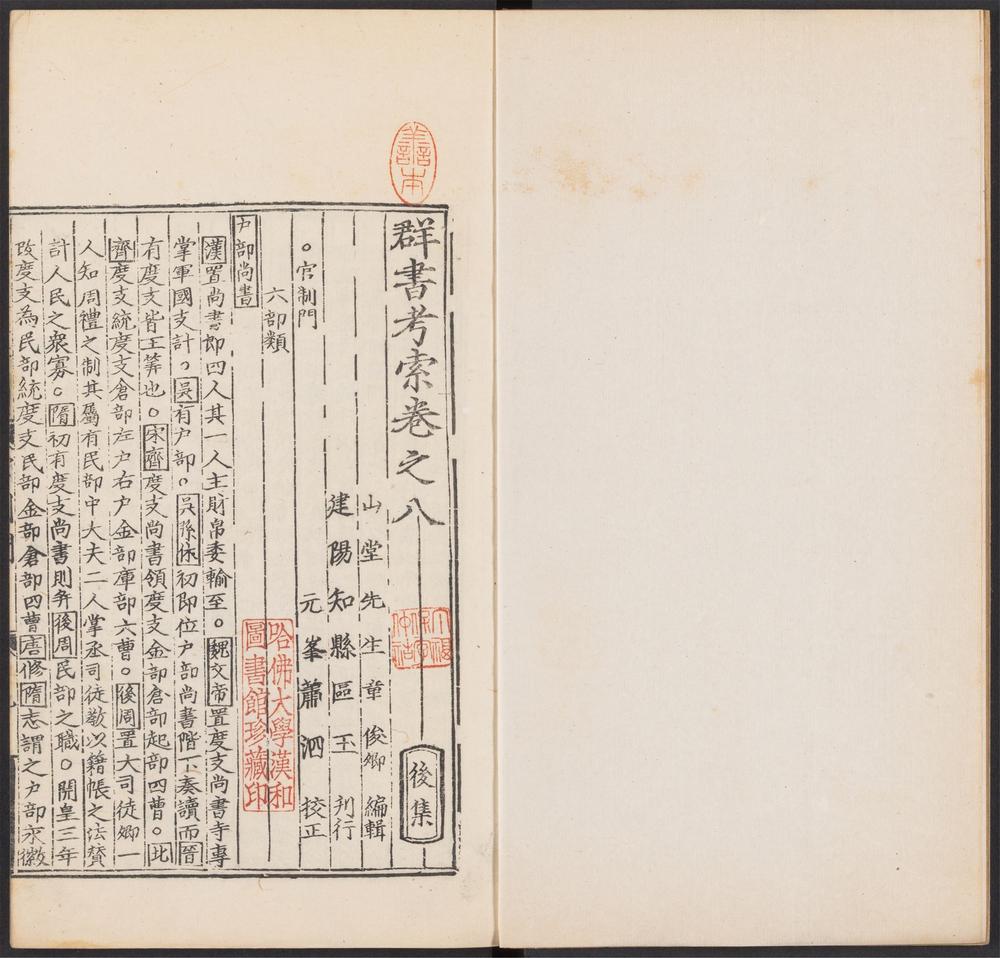 善本
群書考索卷之八
後集
山堂先生章俊卿編輯
建陽知縣區玉刋行
元峯蕭泗校正
。官制門
六部類
哈佛大學漢和圖書館珍藏印
戸部尚書
漢置尚書郎四人其一人主財帛委輸至。魏文帝置度支尚書寺專
掌軍國支計。吳有户部。吳孫休初即位户部尚書階下奏讀而晉
有度支皆主筭也。宋齊度支尚書領度支金部倉部起部四曹。北
齊度支統度支倉部左户右户金部庫部六曹。後周置大司徒卿一
人知周禮之制其屬有民部中大夫二人掌丞司徒敎以籍帳之法賛
計人民之衆寡。隋初有度支尚書則并後周民部之職。開皇三年
改度支為民部統度支民部金部倉部四曹唐修隋志謂之户部永徽